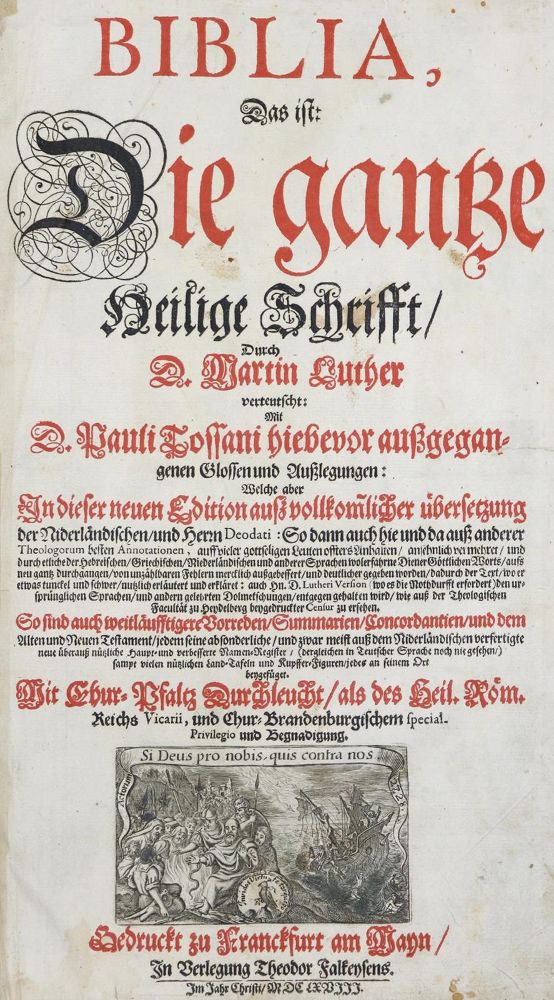 BIBLIA,
Das ist:
Die gantze
Heilige Schrifft/
Durch
D. Martin Luther
verteutscht:
Mit
D. Pauli Tossani hiebevor außgegan-
genen Glossen und Außlegungen:
Welche aber
In dieser neuen Edition auß vollkom̃licher übersetzung
der Niderländischen/und Herrn Deodati: So dann auch hie und da auß anderer
Theologorum besten Annotationen, auff vieler gottseligen Leuten offters Anhalten/ ansehnlich vermehret/ und
durch etliche der Hebreischen/Griechischen/Niederländischen und anderer Sprachen wolerfahrne Diener Göttlichen Worts/aufs
neu gantz durchgangen/von unzählbaren Fehlern mercklich außgebessert/und deutlicher gegeben worden/dadurch der Text/wo er
etwas tunckel und schwer/nutzlich erläutert und erkläret: auch Hn. D. Lutheri Version/(wo es die Nothdurfft erfordert)den ur-
sprünglichen Sprachen/und andern gelehrten Dolmetschungen/entgegen gehalten wird/wie auß der Theologischen
Facultät zu Heydelberg beygedruckter Censur zu ersehen.
So sind auch weitläufftigere Vorreden/Summarien/Concordantien/und dem
Alten und Neuen Testament/jedem seine absonderliche/und zwar meist auß dem Niderländischen verfertigte
neue überauß nützliche Haupt- und verbesserte Namen-Register/(dergleichen in Teutscher Sprache noch nie gesehen/)
sampt vielen nützlichen Land-Tafeln und Kupffer-Figuren/jedes an seinem Ort
beygefüget.
Mit Chur-Pfaltz Durchleucht/als des Heil. Röm.
Reichs Vicarii, und Chur-Brandenburgischem special-
Privilegio und Begnadigung.
Si Deus pro nobis, quis contra nos
Actorum
Gedruckt zu Franckfurt am Mayn/
In Verlegung Theodor Falkeysens.
Im Jahr Christi/M DC LXVIII.